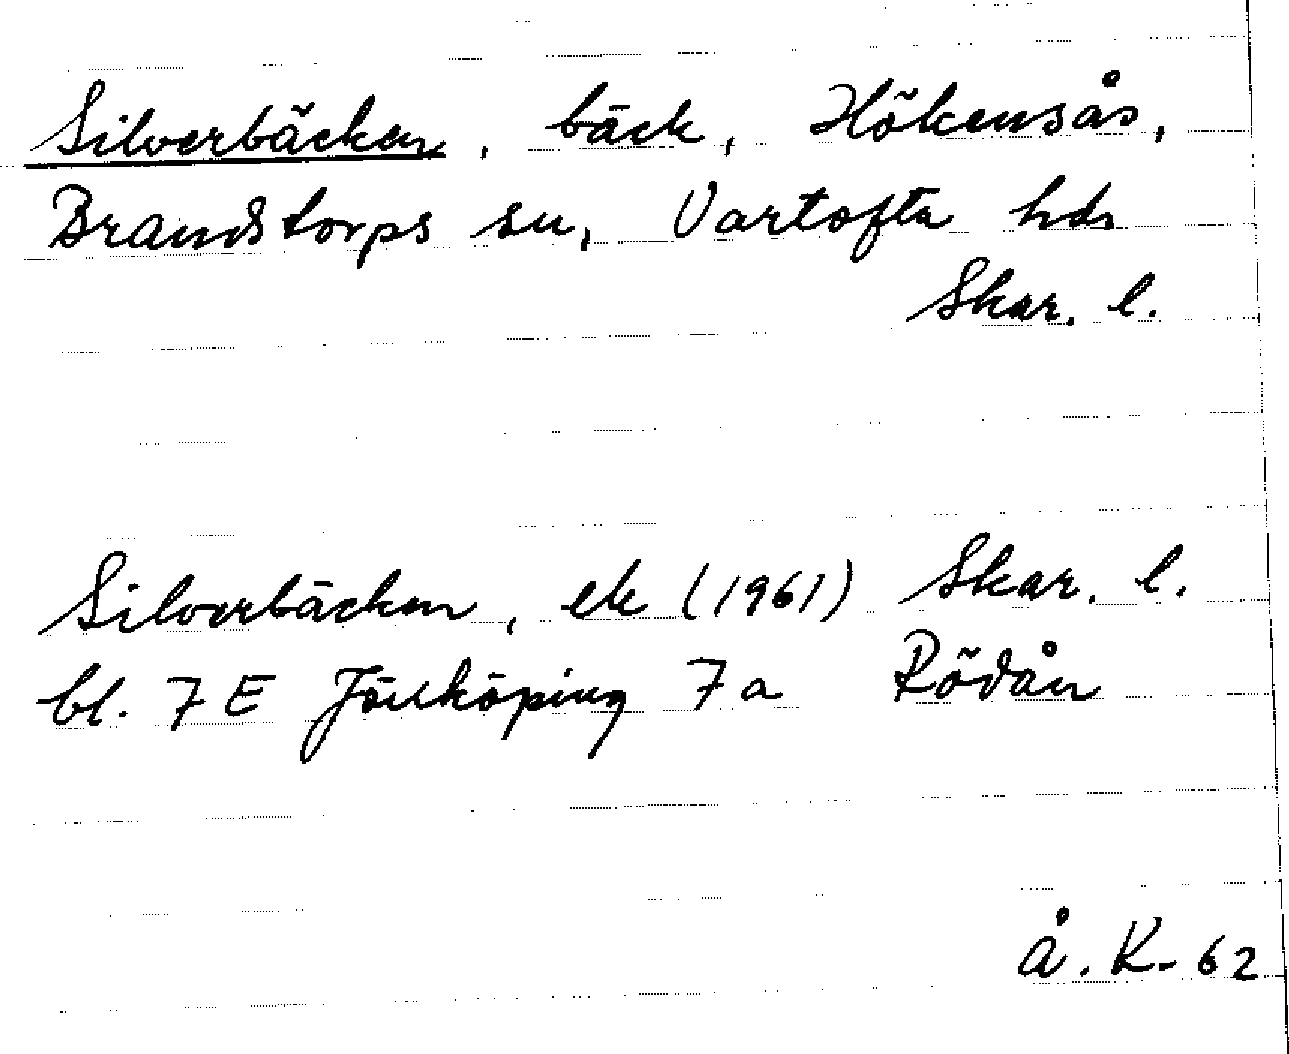 Silverbäcken, bäck, Hökensås,
Brandstorps sn, Vartofta hds
Skar. l.
Silverbäcken, ek (1961) Skar. l.
bl. 7 E Jönköping 7a Rödån
Å. K. 62